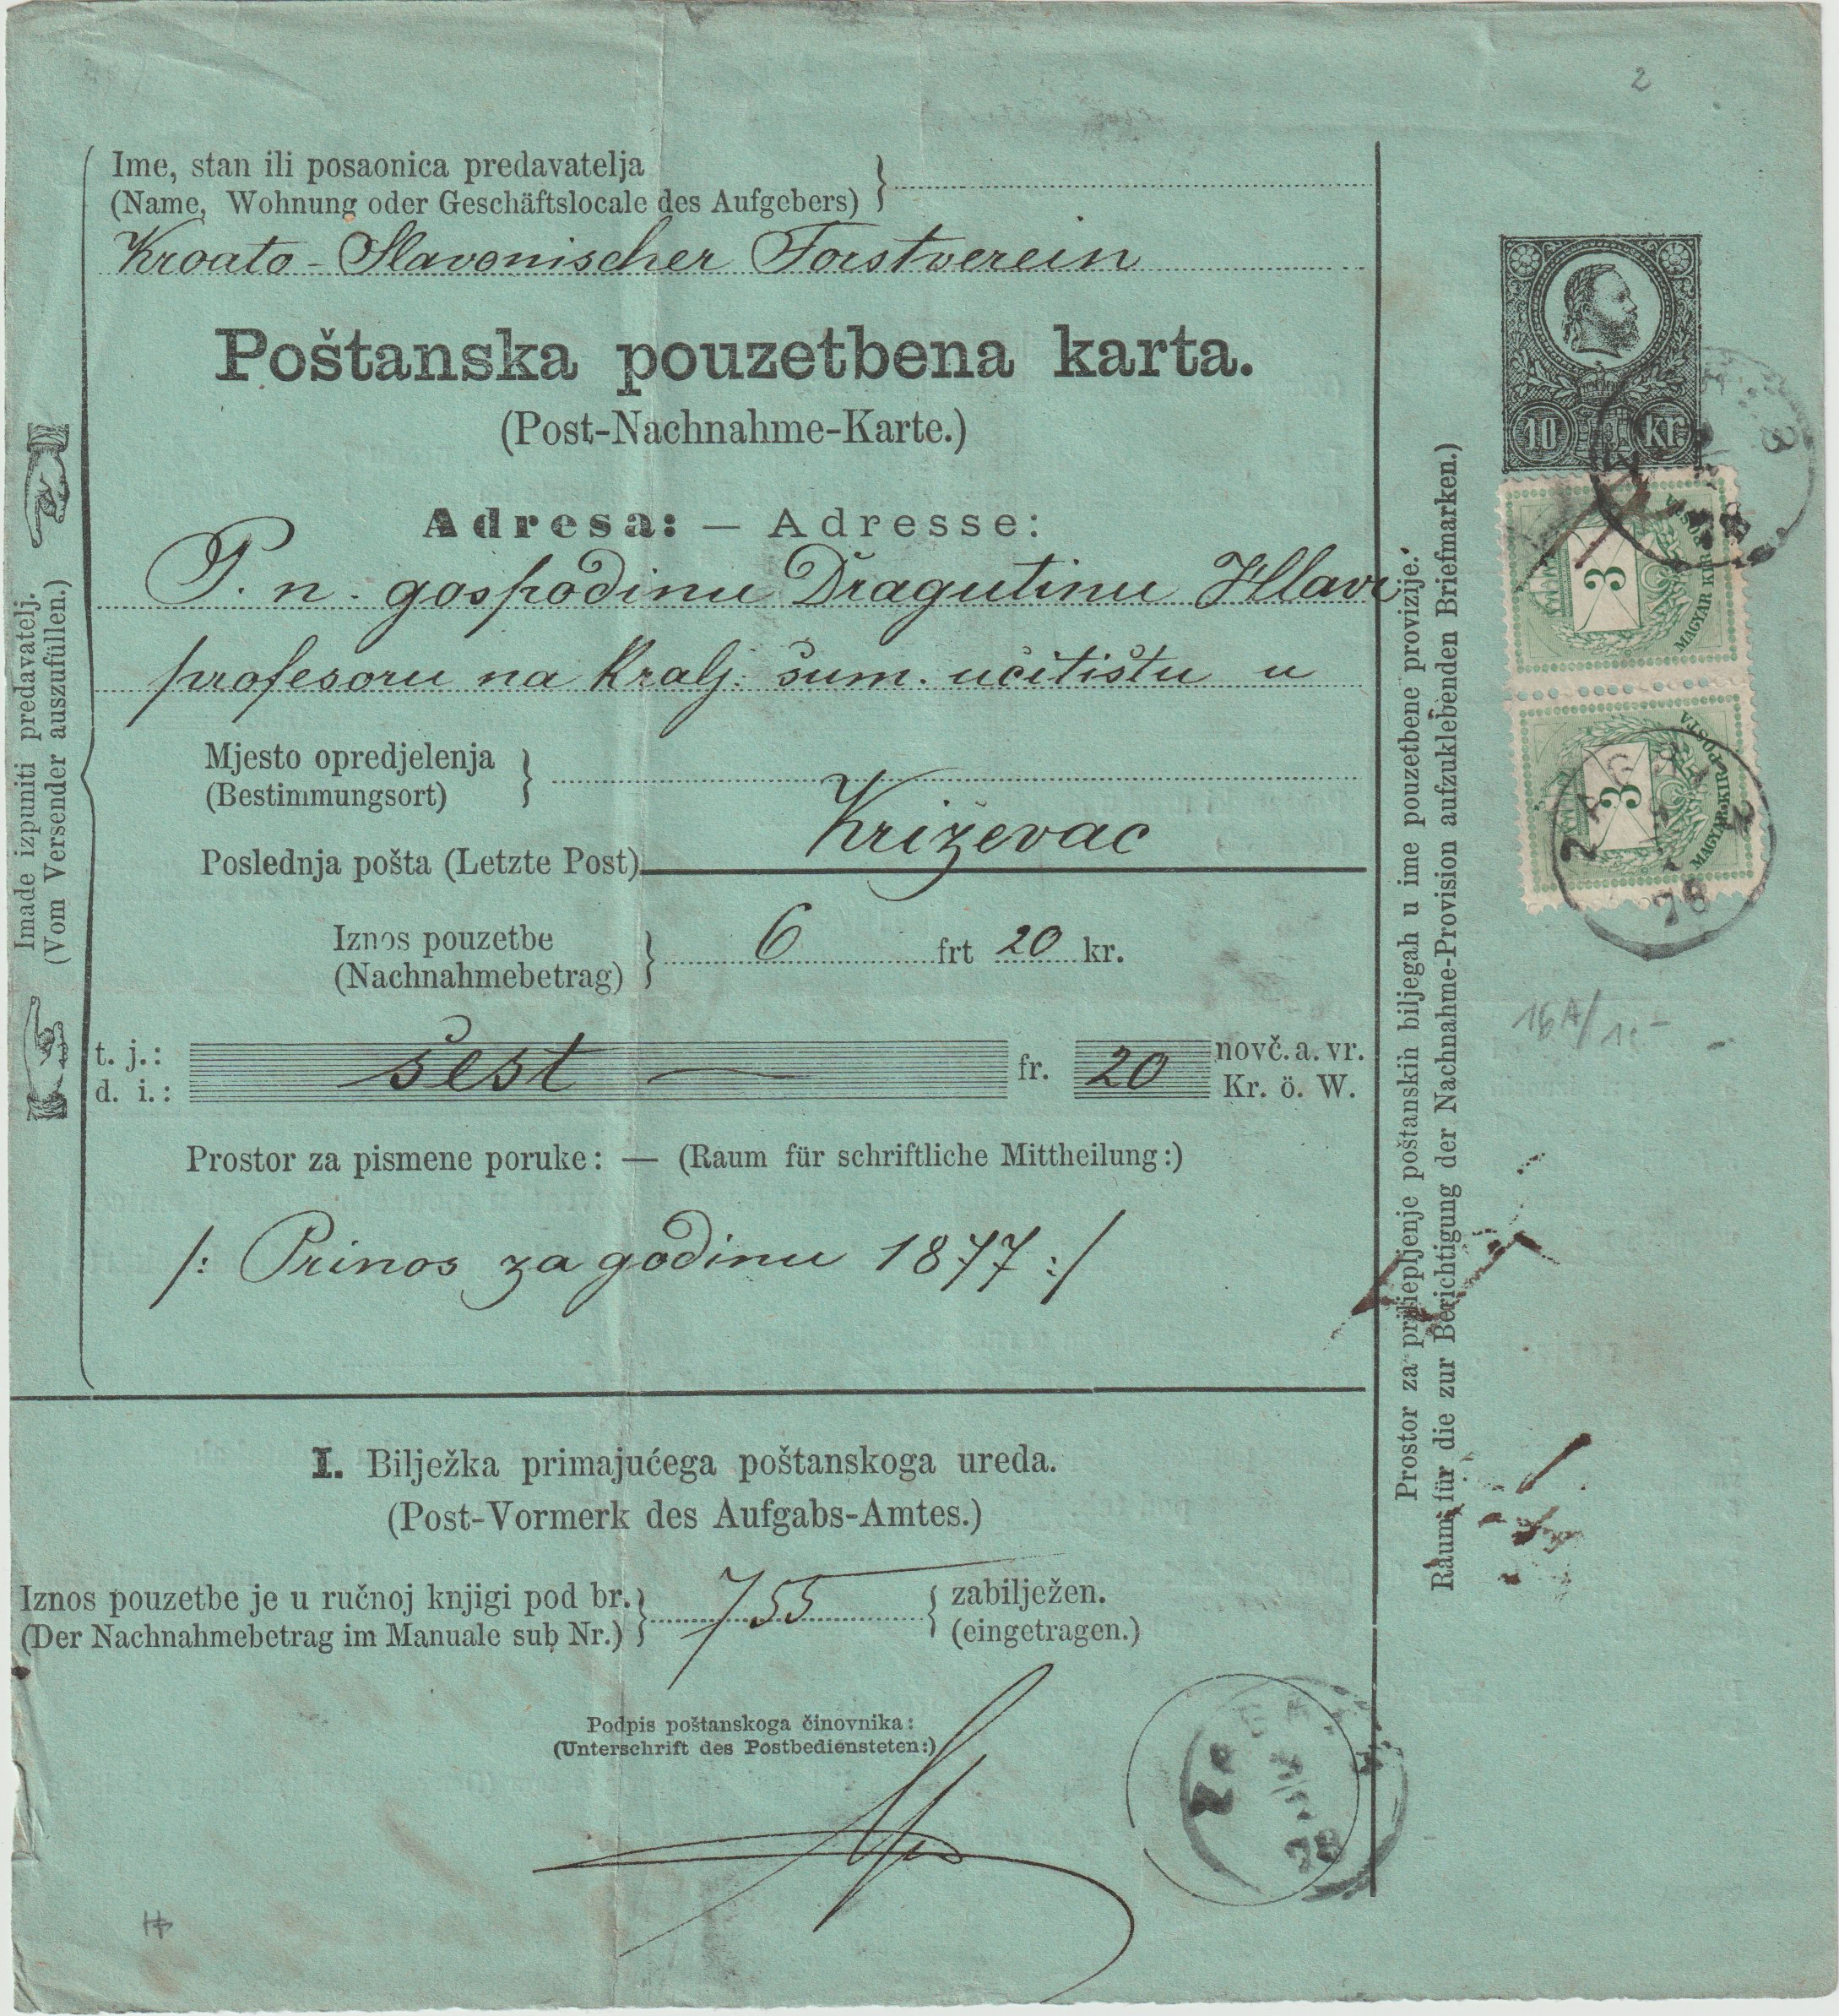 2
Ime, stan ili posaonica predavatelja
(Name, Wohnung oder Geschäftslocale des Aufgebers)
Kroato-Slavonischer Forstverein
Poštanska pouzetbena karta.
(Post-Nachnahme-Karte.)
Adresa: — Adresse:
P. n. gospodinu Dragutinu Hlava
profesoru na kralj. šum. učilištu u
Mjesto opredjelenja
(Bestimmungsort)
Križevac
Poslednja pošta (Letzte Post)
Iznos pouzetbe
(Nachnahmebetrag)
6 frt 20 kr.
t. j.: šest — fr. 20 novč. a. vr.
d. i.: Kr. ö. W.
Prostor za pismene poruke: — (Raum für schriftliche Mittheilung:)
/: Prinos za godinu 1877 :/
I. Bilježka primajućega poštanskoga ureda.
(Post-Vormerk des Aufgabs-Amtes.)
Iznos pouzetbe je u ručnoj knjigi pod br. 755 zabilježen.
(Der Nachnahmebetrag im Manuale sub Nr.) (eingetragen.)
Podpis poštanskoga činovnika:
(Unterschrift des Postbediensteten:)
Imade izpuniti predavatelj.
(Vom Versender auszufüllen.)
Prostor za priliepljenje poštanskih biljegah u ime pouzetbene provizije.
Raum für die zur Berichtigung der Nachnahme-Provision aufzuklebenden Briefmarken.)
10 Kr.
3
MAGYAR KIR. POSTA
3
MAGYAR KIR. POSTA
78
ZAGRA
78